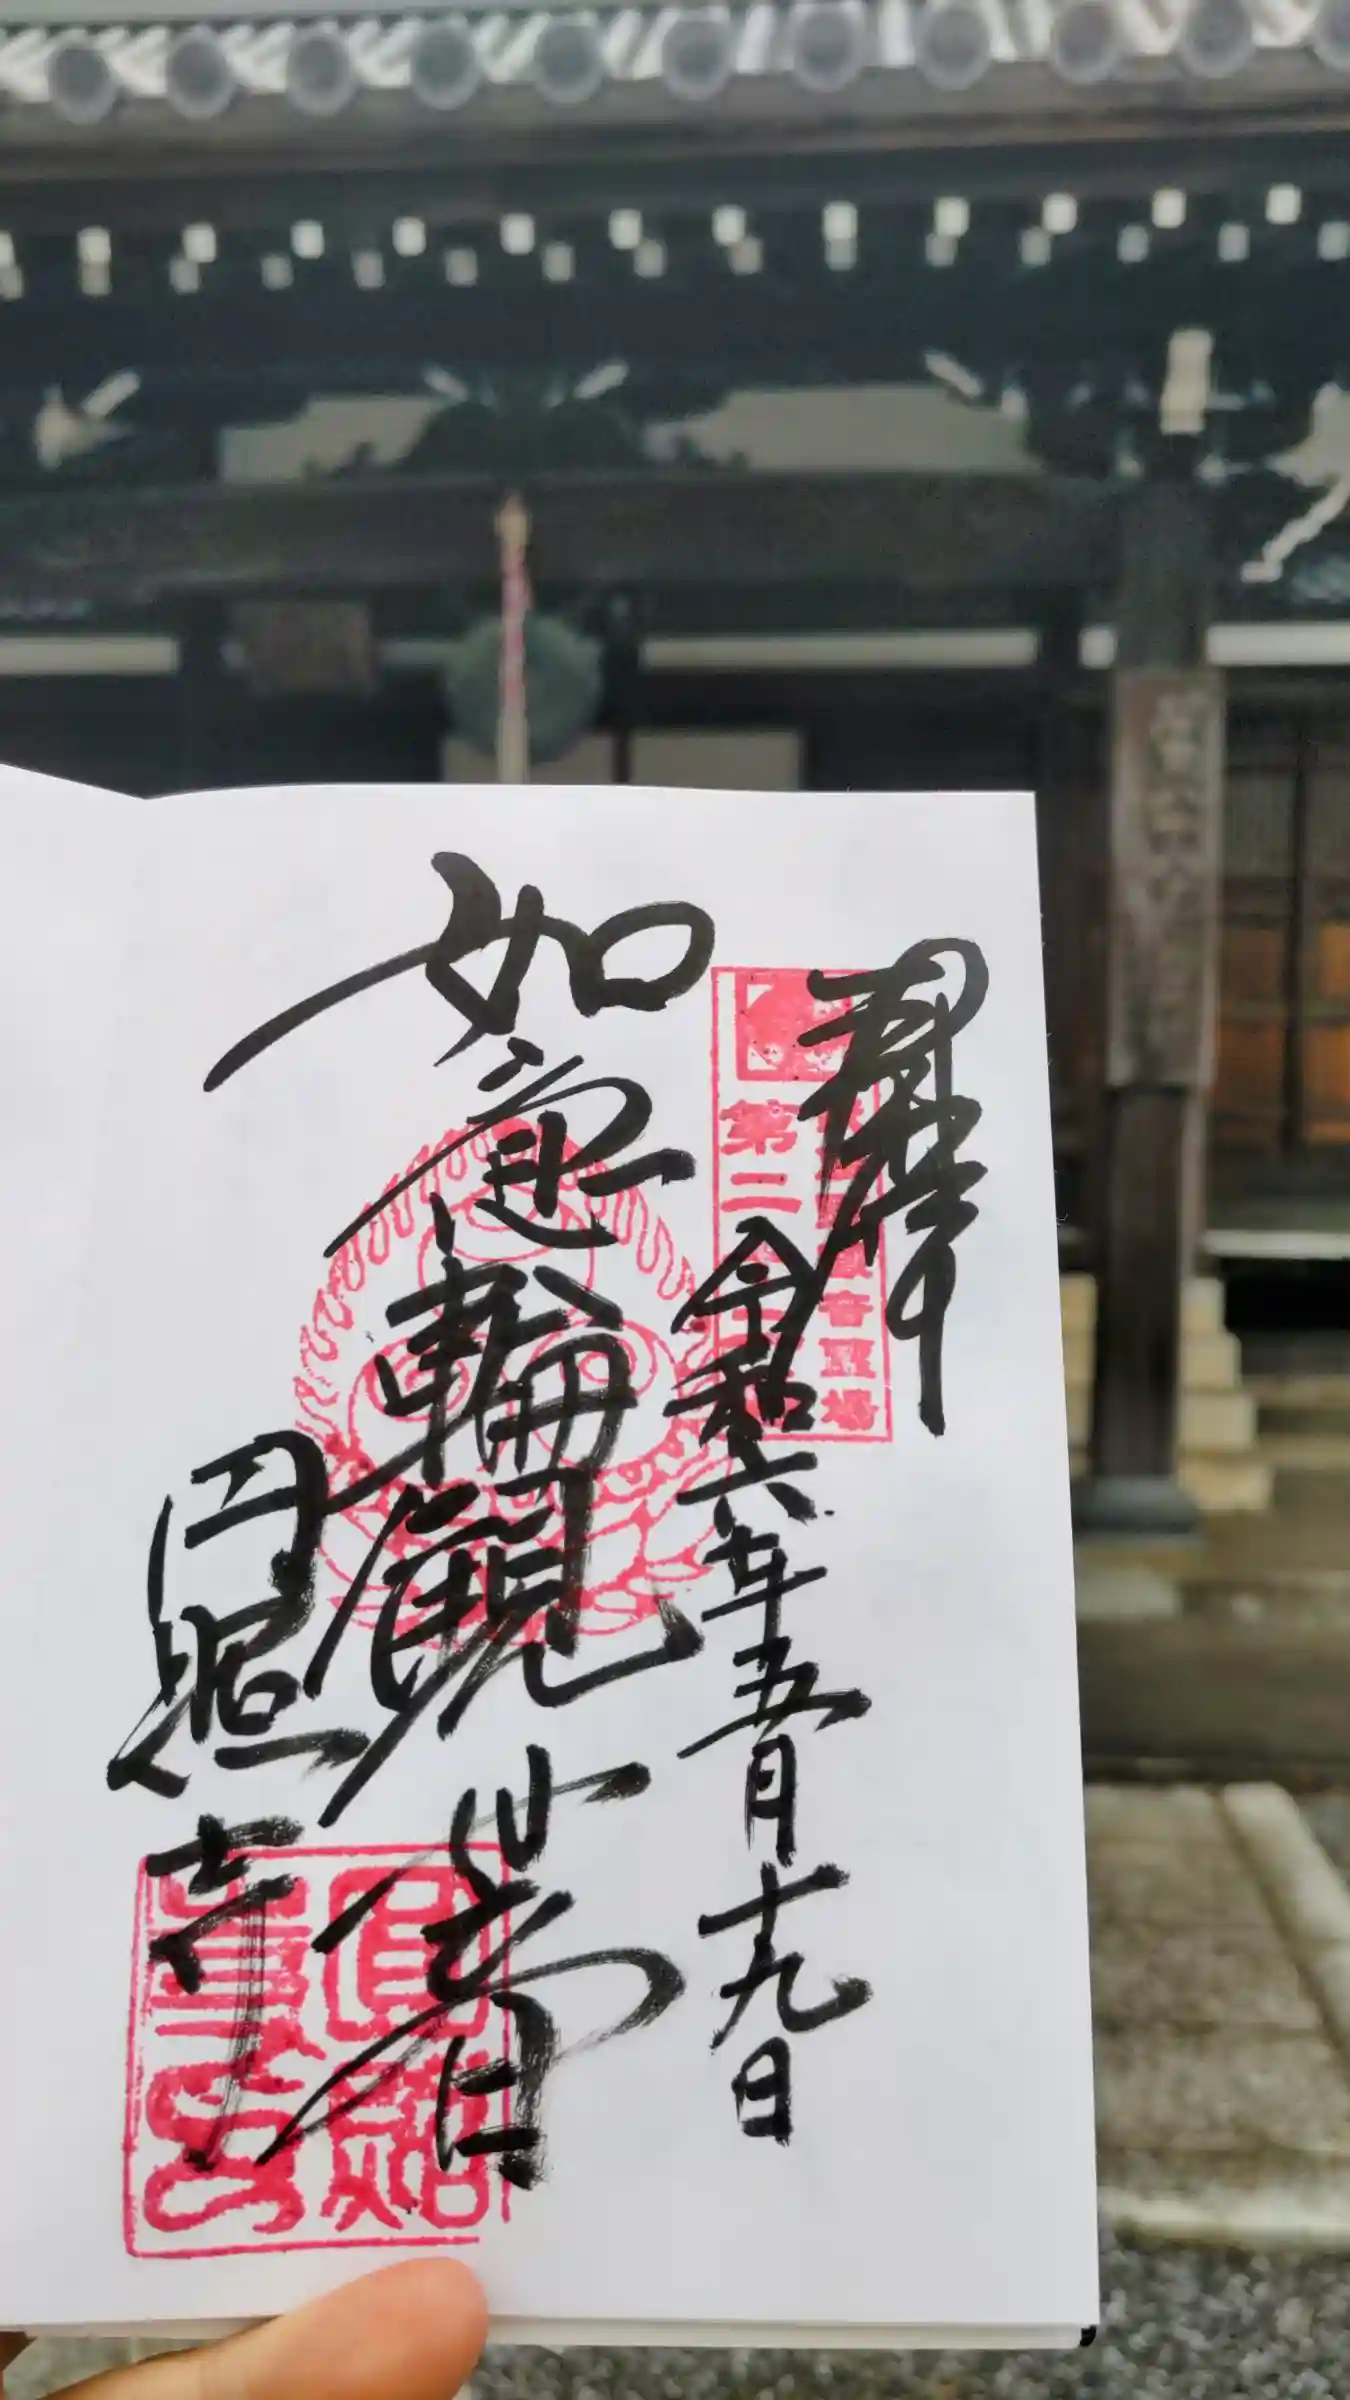 奉拝
令和六年五月十九日
如意輪観世音
円照寺
観音霊場
第二